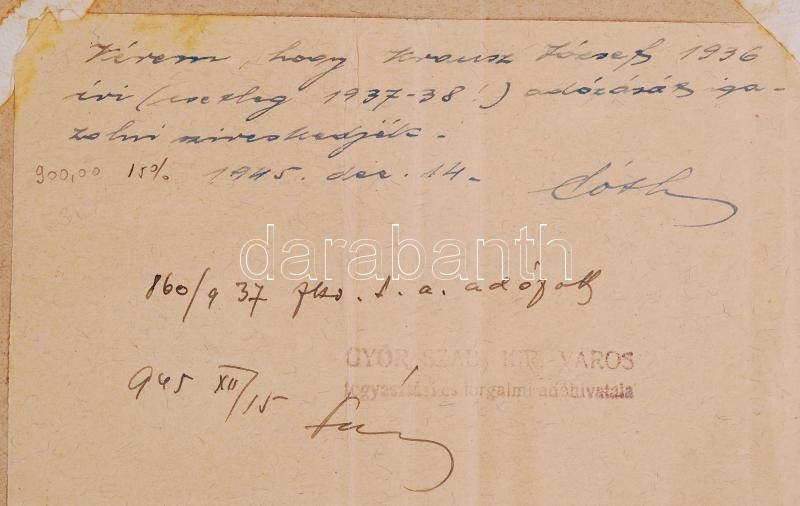 Kérem, hogy Krausz József 1936
évi (esetleg 1937-38!) adózását iga-
zolni sziveskedjék.-
900,00 15% 1945. dec. 14-
Tóth
darabanth
860/937 f. a. adózott
GYŐR SZAB. KIR. VÁROS
fogyasztási és forgalmi adóhivatala
945 XII/15